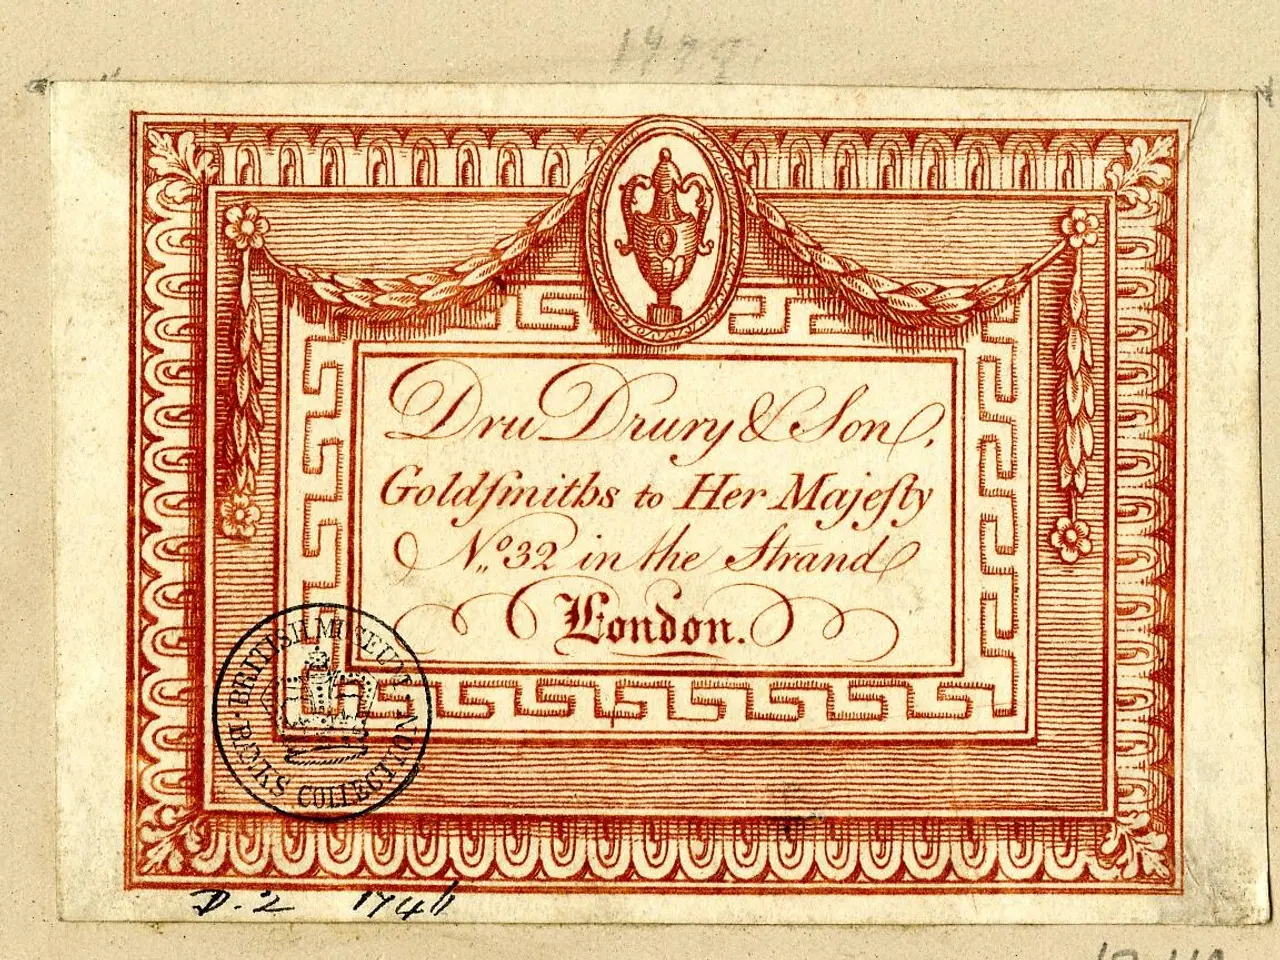 Dru Drury & Son,
Goldſmiths to Her Majeſty
No. 32 in the Strand
London.
BRITISH MUSEUM
BANKS COLLECTION
D.2